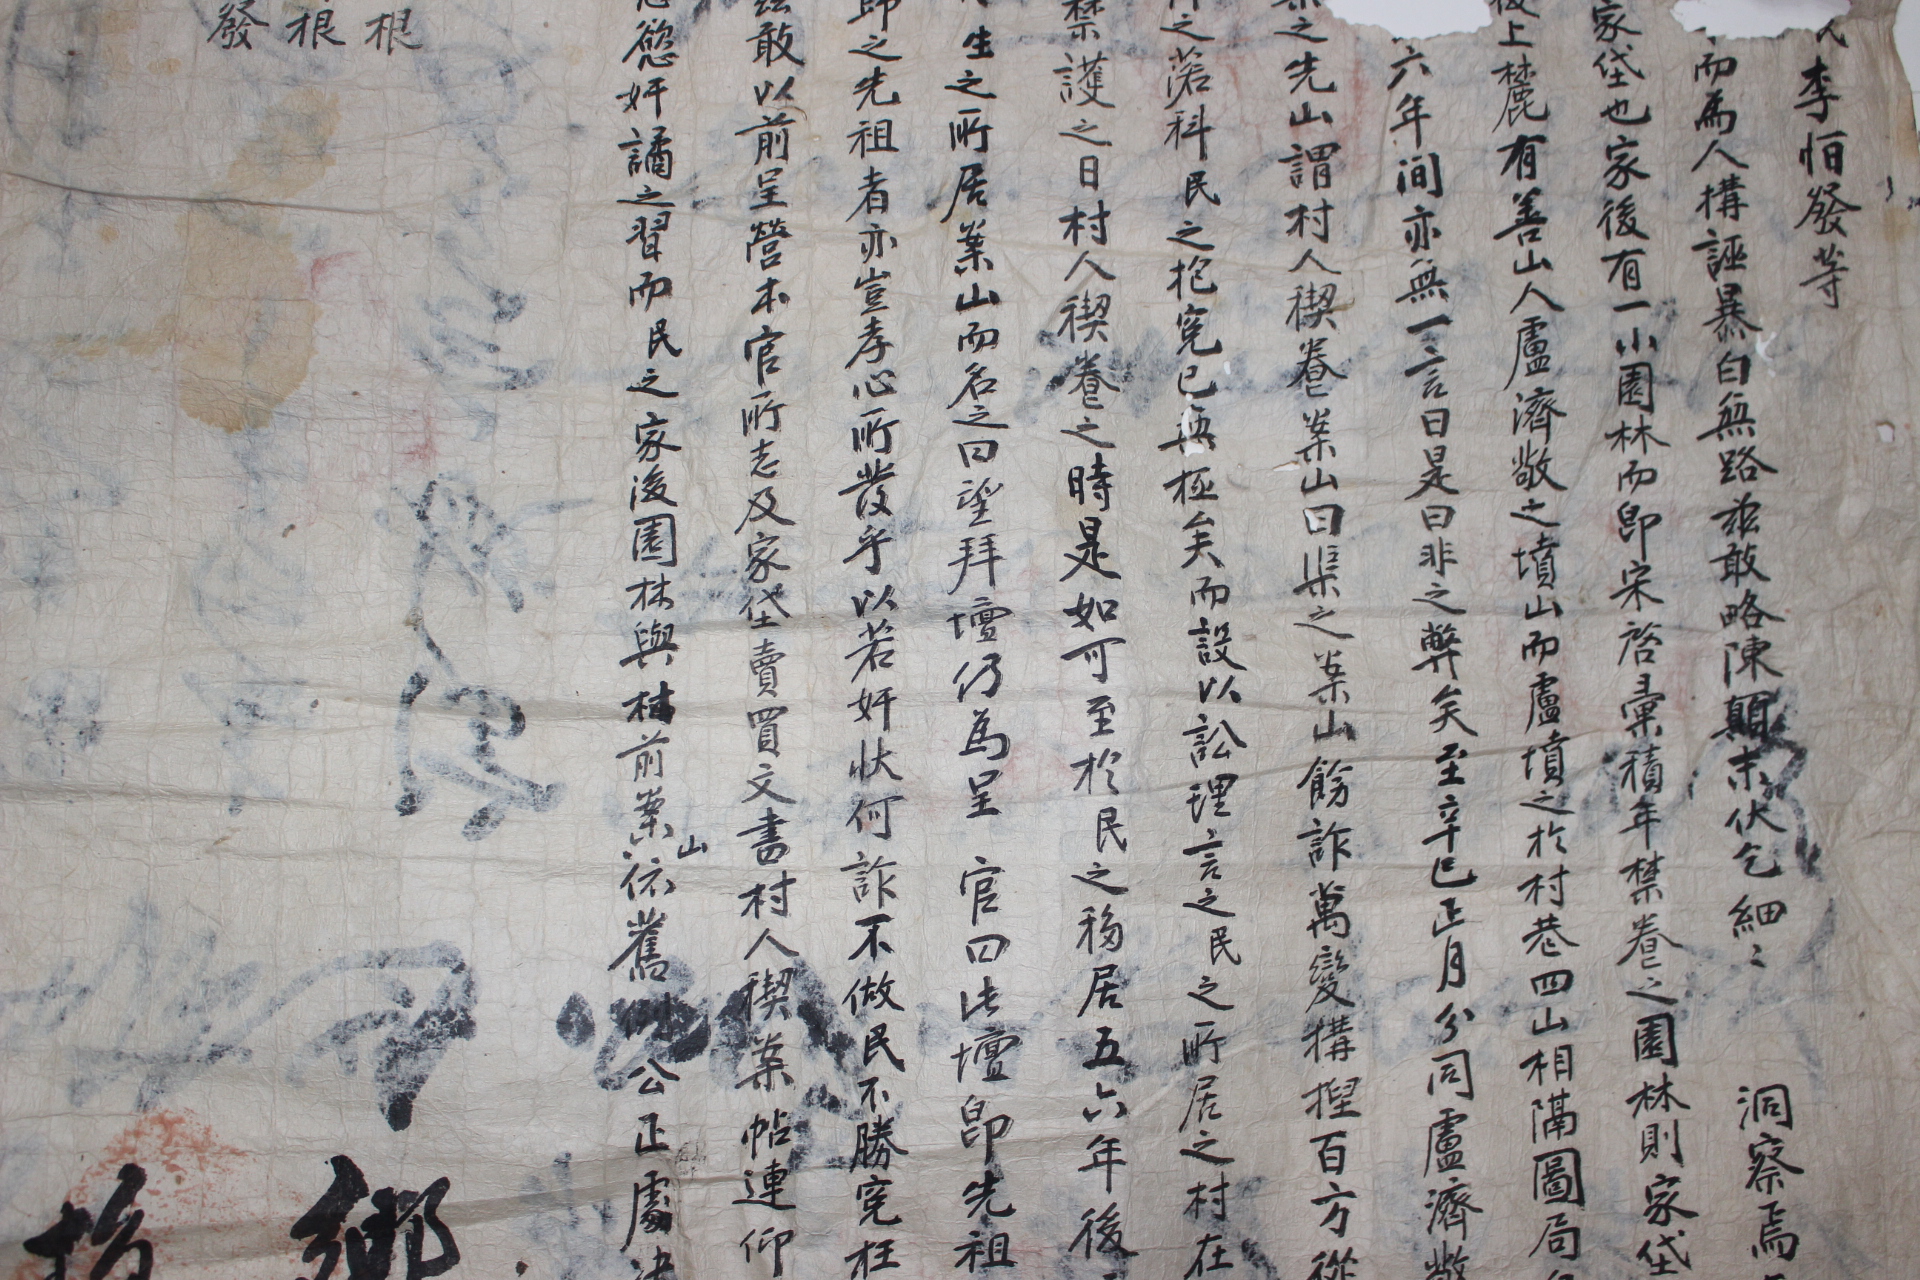 李怕發等
而為人構誣暴白無路玆敢略陳顚末伏乞細〻 洞察焉
家垈也家後有一小園林而卽宋啓彙積年禁養之園林則家垈
上麓有善山人盧濟敞之墳山而盧墳之於村巷四山相隔圖局
六年間亦無一言曰是曰非之弊矣至辛巳正月分同盧濟敞
之先山謂村人禊養案山曰渠之案山餙詐萬變構捏百方從
之落科民之抱寃已無極矣而設以訟理言之民之所居之村在
禁護之日村人禊養之時是如可至於民之移居五六年後
生之所居案山而名之曰望拜壇仍為呈 官曰此壇卽先祖
卽之先祖者亦豈孝心所發乎以若奸狀何詐不做民不勝寃枉
玆敢以前呈營本官所志及家垈賣買文書村人禊案帖連仰
慾奸譎之習而民之家後園林與村前案山依舊例公正處決
根
根
發
鄕